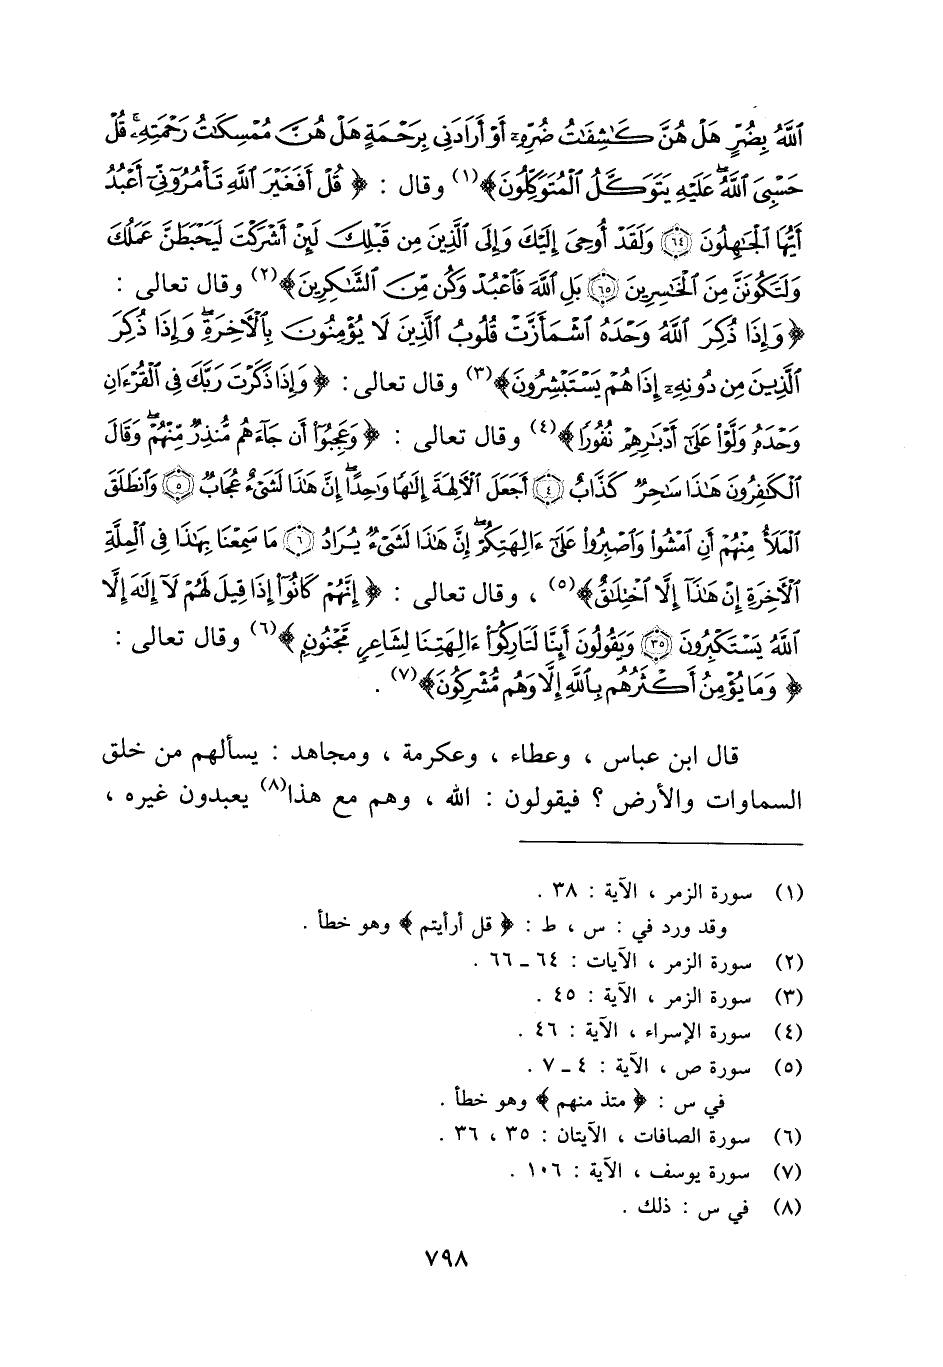 اللَّهُ بِضُرٍّ هَلْ هُنَّ كَاشِفَاتُ ضُرِّهِ أَوْ أَرَادَنِي بِرَحْمَةٍ هَلْ هُنَّ مُمْسِكَاتُ رَحْمَتِهِ قُلْ
حَسْبِيَ اللَّهُ عَلَيْهِ يَتَوَكَّلُ الْمُتَوَكِّلُونَ﴾(١) وقال : ﴿ قُلْ أَفَغَيْرَ اللَّهِ تَأْمُرُونِّي أَعْبُدُ
أَيُّهَا الْجَاهِلُونَ ﴿٦٤﴾ وَلَقَدْ أُوحِيَ إِلَيْكَ وَإِلَى الَّذِينَ مِن قَبْلِكَ لَئِنْ أَشْرَكْتَ لَيَحْبَطَنَّ عَمَلُكَ
وَلَتَكُونَنَّ مِنَ الْخَاسِرِينَ ﴿٦٥﴾ بَلِ اللَّهَ فَاعْبُدْ وَكُن مِّنَ الشَّاكِرِينَ﴾(٢) وقال تعالى :
﴿وَإِذَا ذُكِرَ اللَّهُ وَحْدَهُ اشْمَأَزَّتْ قُلُوبُ الَّذِينَ لَا يُؤْمِنُونَ بِالْآخِرَةِ وَإِذَا ذُكِرَ
الَّذِينَ مِن دُونِهِ إِذَا هُمْ يَسْتَبْشِرُونَ﴾(٣) وقال تعالى : ﴿ وَإِذَا ذَكَرْتَ رَبَّكَ فِي الْقُرْءَانِ
وَحْدَهُ وَلَّوْا عَلَىٰ أَدْبَارِهِمْ نُفُورًا﴾(٤) وقال تعالى : ﴿ وَعَجِبُوا أَن جَاءَهُم مُّنذِرٌ مِّنْهُمْ وَقَالَ
الْكَافِرُونَ هَٰذَا سَاحِرٌ كَذَّابٌ ﴿٤﴾ أَجَعَلَ الْآلِهَةَ إِلَٰهًا وَاحِدًا إِنَّ هَٰذَا لَشَيْءٌ عُجَابٌ ﴿٥﴾ وَانطَلَقَ
الْمَلَأُ مِنْهُمْ أَنِ امْشُوا وَاصْبِرُوا عَلَىٰ ءَالِهَتِكُمْ إِنَّ هَٰذَا لَشَيْءٌ يُرَادُ ﴿٦﴾ مَا سَمِعْنَا بِهَٰذَا فِي الْمِلَّةِ
الْآخِرَةِ إِنْ هَٰذَا إِلَّا اخْتِلَاقٌ﴾(٥) ، وقال تعالى : ﴿ إِنَّهُمْ كَانُوا إِذَا قِيلَ لَهُمْ لَا إِلَٰهَ إِلَّا
اللَّهُ يَسْتَكْبِرُونَ ﴿٣٥﴾ وَيَقُولُونَ أَئِنَّا لَتَارِكُوا ءَالِهَتِنَا لِشَاعِرٍ مَّجْنُونٍ ﴾(٦) وقال تعالى :
﴿ وَمَا يُؤْمِنُ أَكْثَرُهُم بِاللَّهِ إِلَّا وَهُم مُّشْرِكُونَ﴾(٧) .
قال ابن عباس ، وعطاء ، وعكرمة ، ومجاهد : يسألهم من خلق
السماوات والأرض ؟ فيقولون : الله ، وهم مع هذا(٨) يعبدون غيره ،
(١) سورة الزمر ، الآية : ٣٨ .
وقد ورد في : س ، ط : ﴿ قل أرأيتم ﴾ وهو خطأ .
(٢) سورة الزمر ، الآيات : ٦٤ ـ ٦٦ .
(٣) سورة الزمر ، الآية : ٤٥ .
(٤) سورة الإسراء ، الآية : ٤٦ .
(٥) سورة ص ، الآية : ٤ ـ ٧ .
في س : ﴿ متذ منهم ﴾ وهو خطأ .
(٦) سورة الصافات ، الآيتان : ٣٥ ، ٣٦ .
(٧) سورة يوسف ، الآية : ١٠٦ .
(٨) في س : ذلك .
٧٩٨